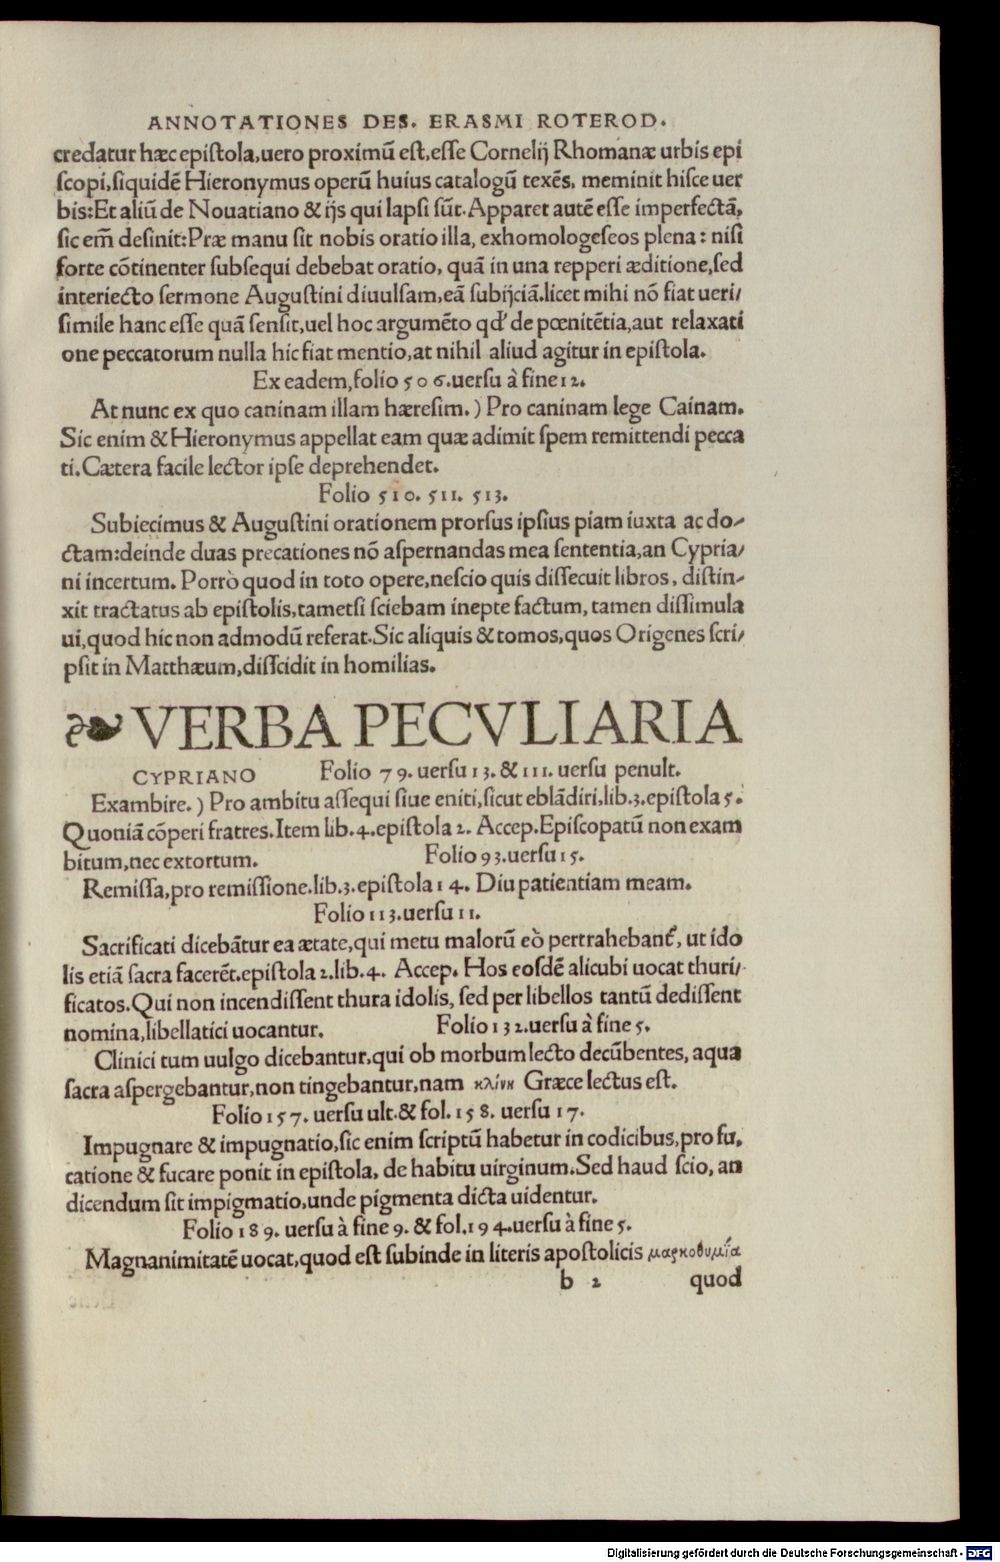 ANNOTATIONES DES. ERASMI ROTEROD.
credatur hæc epistola, uero proximũ est, esse Cornelij Rhomanæ urbis epi
scopi, siquidẽ Hieronymus operũ huius catalogũ texẽs, meminit hisce uer
bis: Et aliũ de Nouatiano & ijs qui lapsi sũt. Apparet autẽ esse imperfectã,
sic em̃ desinit: Præ manu sit nobis oratio illa, exhomologeseos plena: nisi
forte cõtinenter subsequi debebat oratio, quã in una repperi æditione, sed
interiecto sermone Augustini diuulsam, eã subijciã. licet mihi nõ fiat ueri/
simile hanc esse quã sensit, uel hoc argumẽto qd' de pœnitẽtia, aut relaxati
one peccatorum nulla hic fiat mentio, at nihil aliud agitur in epistola.
Ex eadem, folio 506. uersu à fine 12.
At nunc ex quo caninam illam hæresim. ) Pro caninam lege Cainam.
Sic enim & Hieronymus appellat eam quæ adimit spem remittendi pecca
ti. Cætera facile lector ipse deprehendet.
Folio 510. 511. 513.
Subiecimus & Augustini orationem prorsus ipsius piam iuxta ac do/
ctam: deinde duas precationes nõ aspernandas mea sententia, an Cypria/
ni incertum. Porrò quod in toto opere, nescio quis dissecuit libros, distin/
xit tractatus ab epistolis, tametsi sciebam inepte factum, tamen dissimula
ui, quod hic non admodũ referat. Sic aliquis & tomos, quos Origenes scri/
psit in Matthæum, discidit in homilias.
❧ VERBA PECVLIARIA
CYPRIANO Folio 79. uersu 13. & 111. uersu penult.
Exambire. ) Pro ambitu assequi siue eniti, sicut eblãdiri, lib. 3. epistola 5.
Quoniã cõperi fratres. Item lib. 4. epistola 2. Accep. Episcopatũ non exam
bitum, nec extortum. Folio 93. uersu 15.
Remissa, pro remissione. lib. 3. epistola 14. Diu patientiam meam.
Folio 113. uersu 11.
Sacrificati dicebãtur ea ætate, qui metu malorũ eò pertrahebant̃, ut ido
lis etiã sacra facerẽt. epistola 2. lib. 4. Accep. Hos eosdẽ alicubi uocat thuri/
ficatos. Qui non incendissent thura idolis, sed per libellos tantũ dedissent
nomina, libellatici uocantur. Folio 132. uersu à fine 5.
Clinici tum uulgo dicebantur, qui ob morbum lecto decũbentes, aqua
sacra aspergebantur, non tingebantur, nam κλίνη Græce lectus est.
Folio 157. uersu ult. & fol. 158. uersu 17.
Impugnare & impugnatio, sic enim scriptũ habetur in codicibus, pro fu,
catione & fucare ponit in epistola, de habitu uirginum. Sed haud scio, an
dicendum sit impigmatio, unde pigmenta dicta uidentur.
Folio 189. uersu à fine 9. & fol. 194. uersu à fine 5.
Magnanimitatẽ uocat, quod est subinde in literis apostolicis μαρκοθυμία
b 2 quod
Digitalisierung gefördert durch die Deutsche Forschungsgemeinschaft - DFG